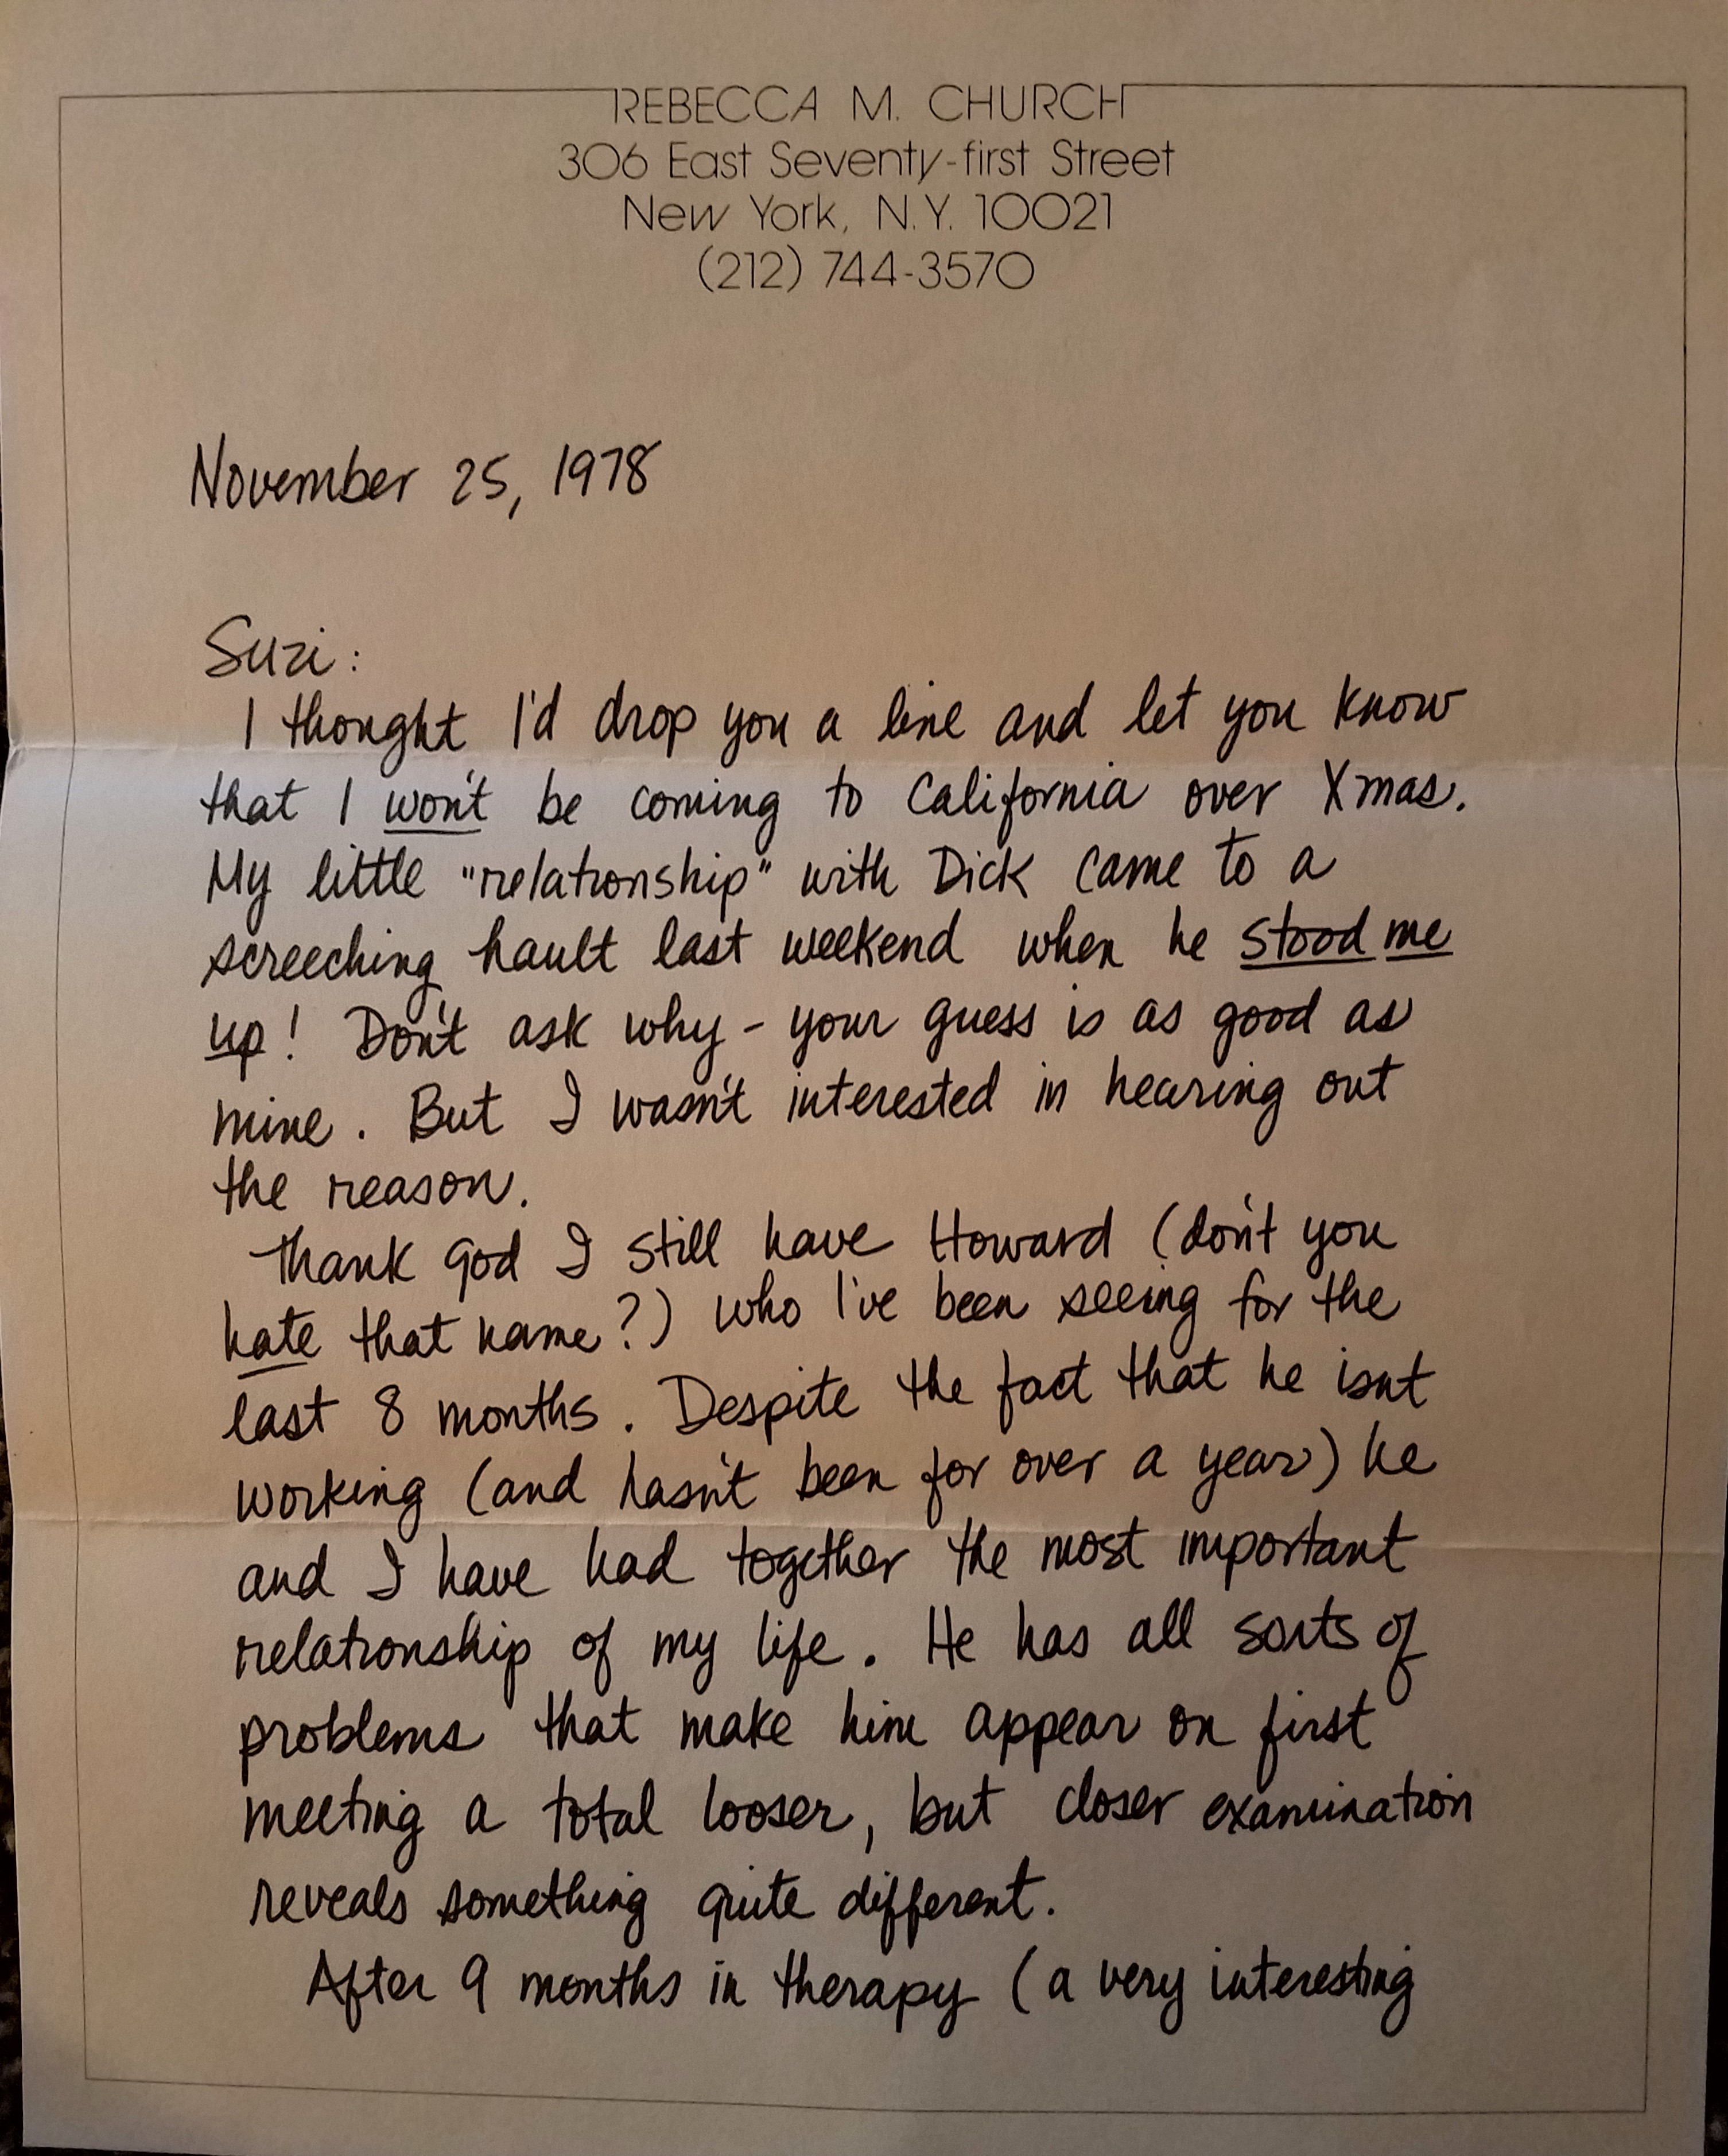 REBECCA M. CHURCH
306 East Seventy-first Street
New York, N.Y. 10021
(212) 744-3570
November 25, 1978
Suzi:
I thought I'd drop you a line and let you know
that I won't be coming to California over Xmas.
My little "relationship" with Dick came to a
screeching hault last weekend when he stood me
up! Don't ask why - your guess is as good as
mine. But I wasn't interested in hearing out
the reason.
Thank god I still have Howard (don't you
hate that name?) who I've been seeing for the
last 8 months. Despite the fact that he isnt
working (and hasn't been for over a year) he
and I have had together the most important
relationship of my life. He has all sorts of
problems that make him appear on first
meeting a total looser, but closer examination
reveals something quite different.
After 9 months in therapy (a very interesting